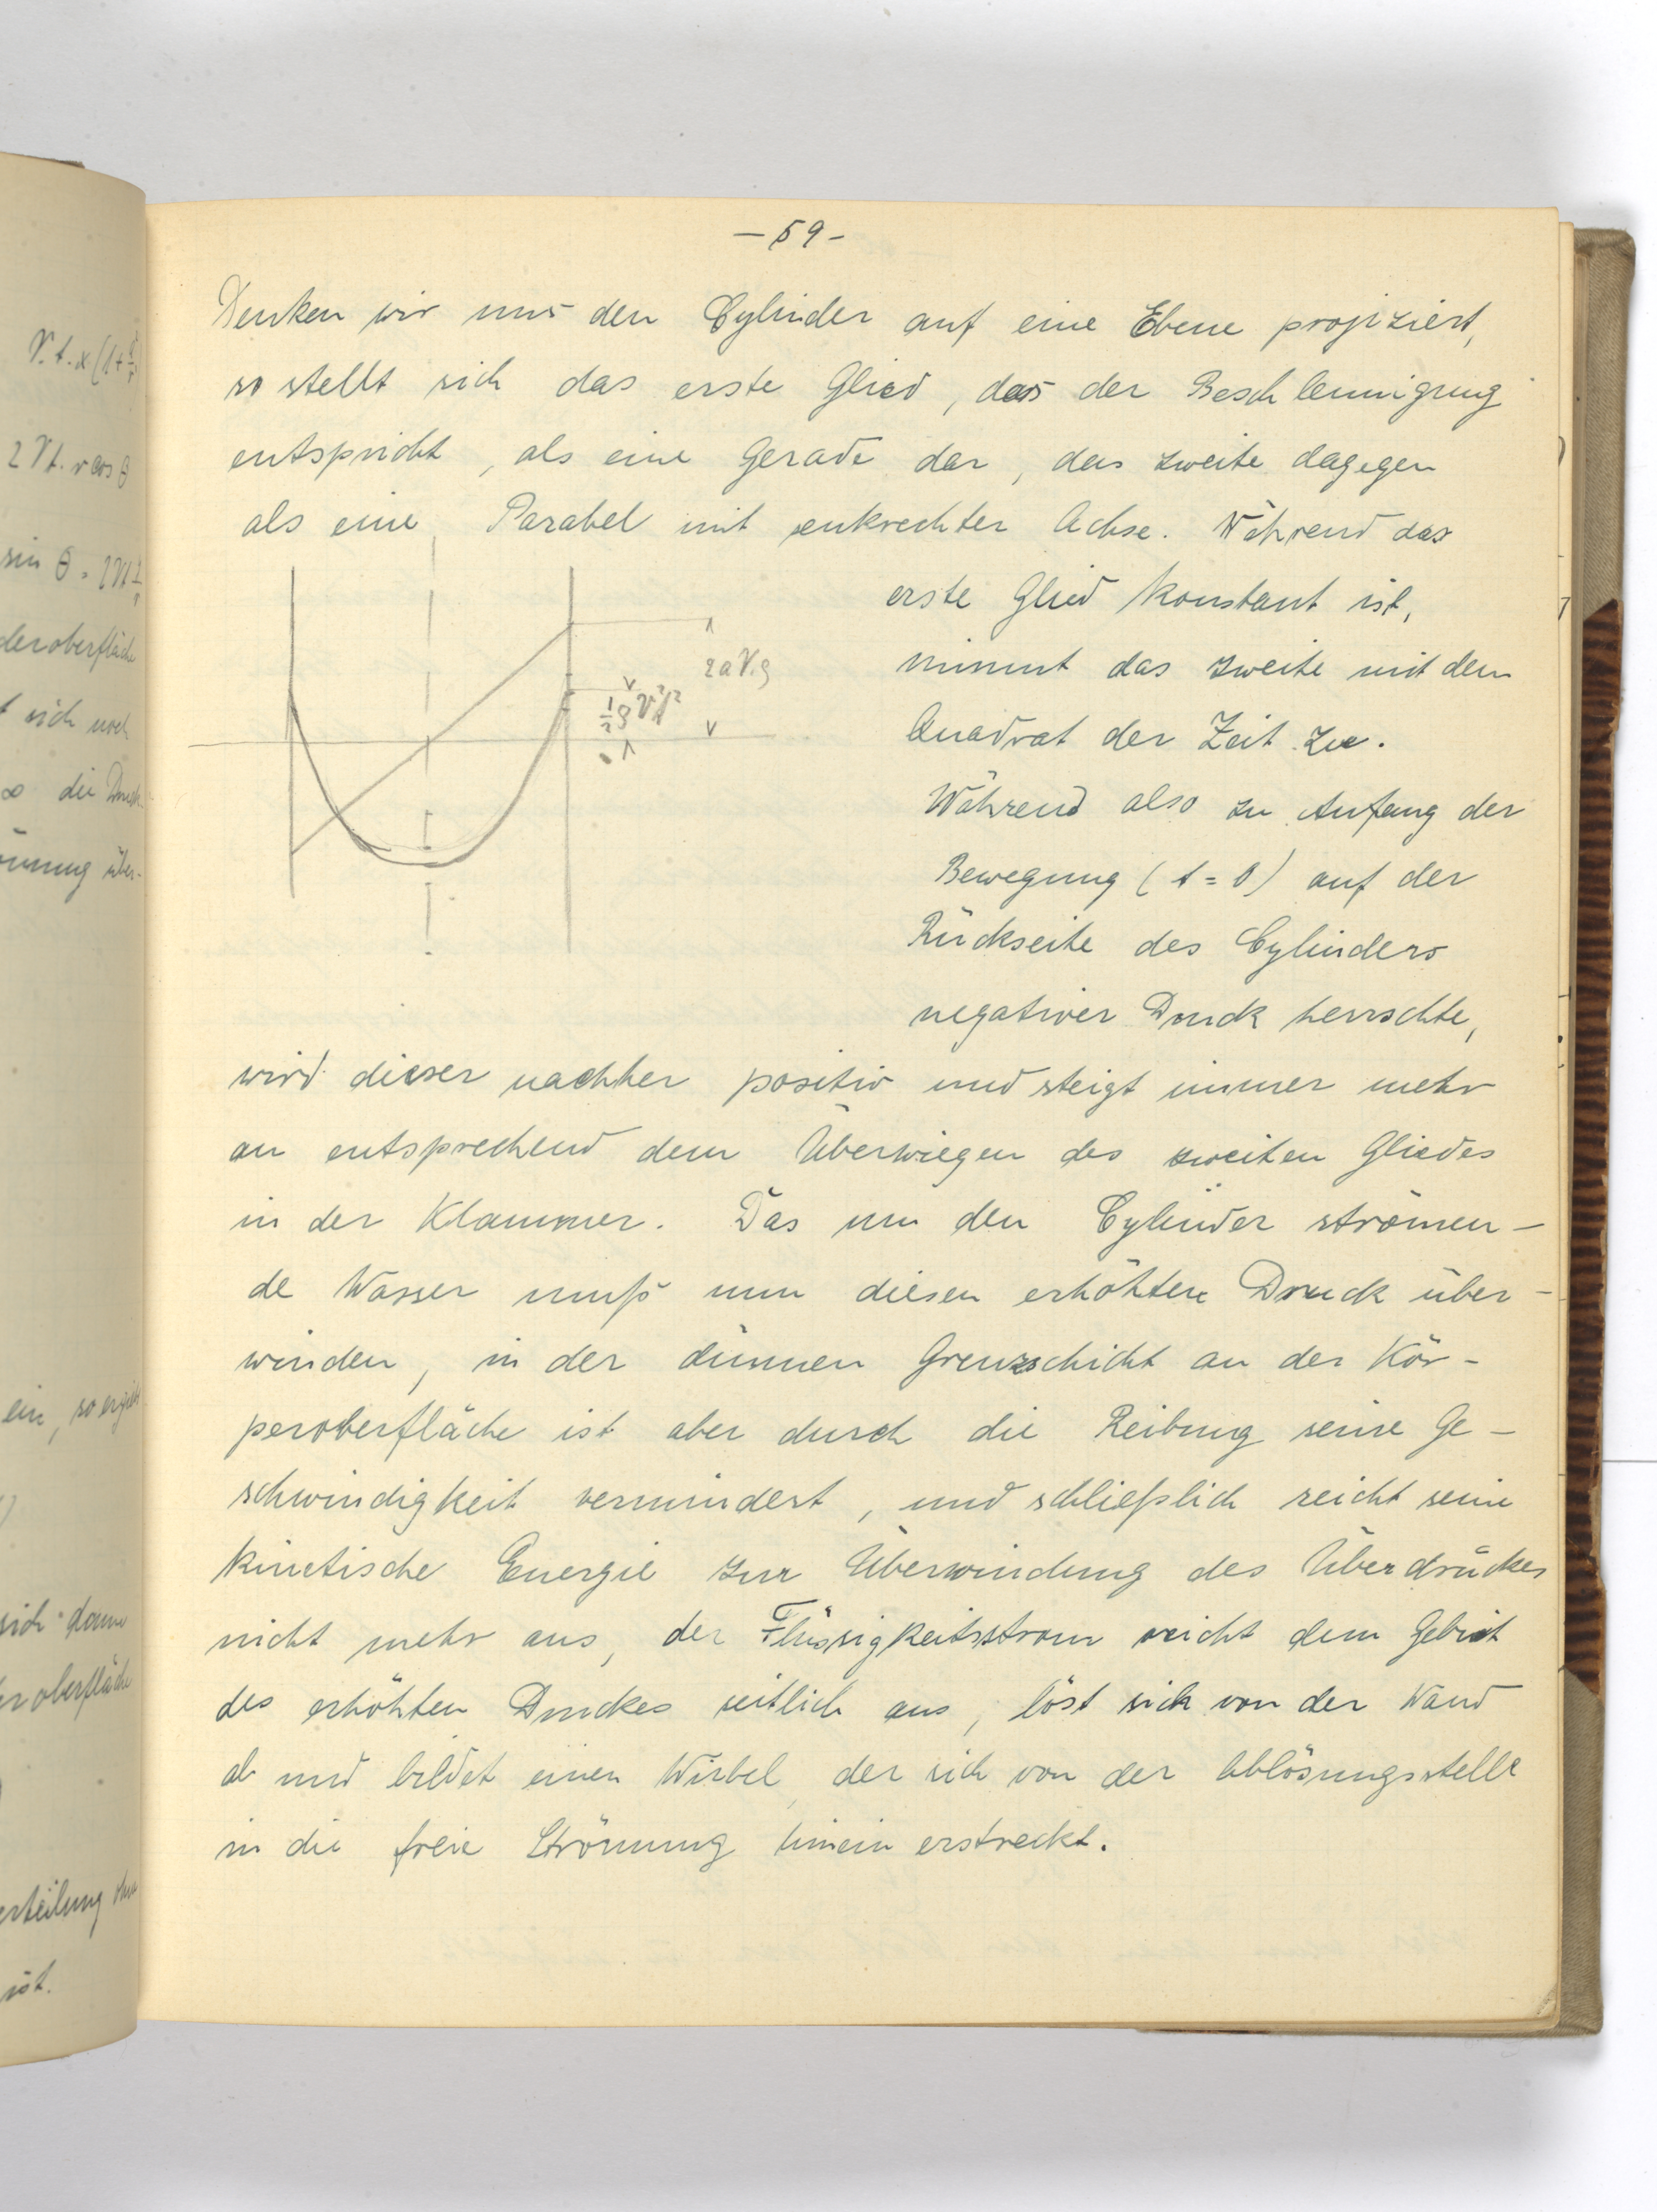 V.t.x(1+
2Vt.r cos θ
sin θ = 2Vt
deroberfläche
t sich noch
∞ die Druck-
ömung über-
ein, so ergiebt
sich dann
er oberfläche
erteilung
ist.
– 59 –
Denken wir uns den Cylinder auf eine Ebene projiziert,
so stellt sich das erste Glied, das der Beschleunigung
entspricht, als eine Gerade dar, das zweite dagegen
als eine Parabel mit senkrechter Achse. Während das
erste Glied konstant ist,
nimmt das zweite mit dem
Quadrat der Zeit zu.
Während also zu Anfang der
Bewegung (t = 0) auf der
Rückseite des Cylinders
negativer Druck herrschte,
2aV.ρ
½ρV²t²
wird dieser nachher positiv und steigt immer mehr
an entsprechend dem Überwiegen des zweiten Gliedes
in der Klammer. Das um den Cylinder strömen-
de Wasser muß nun diesen erhöhten Druck über-
winden, in der dünnen Grenzschicht an der Kör-
peroberfläche ist aber durch die Reibung seine Ge-
schwindigkeit vermindert, und schließlich reicht seine
kinetische Energie zur Überwindung des Überdruckes
nicht mehr aus, der Flüssigkeitsstrom weicht dem Gebiet
des erhöhten Druckes seitlich aus, löst sich von der Wand
ab und bildet einen Wirbel, der sich von der Ablösungsstelle
in die freie Strömung hinein erstreckt.